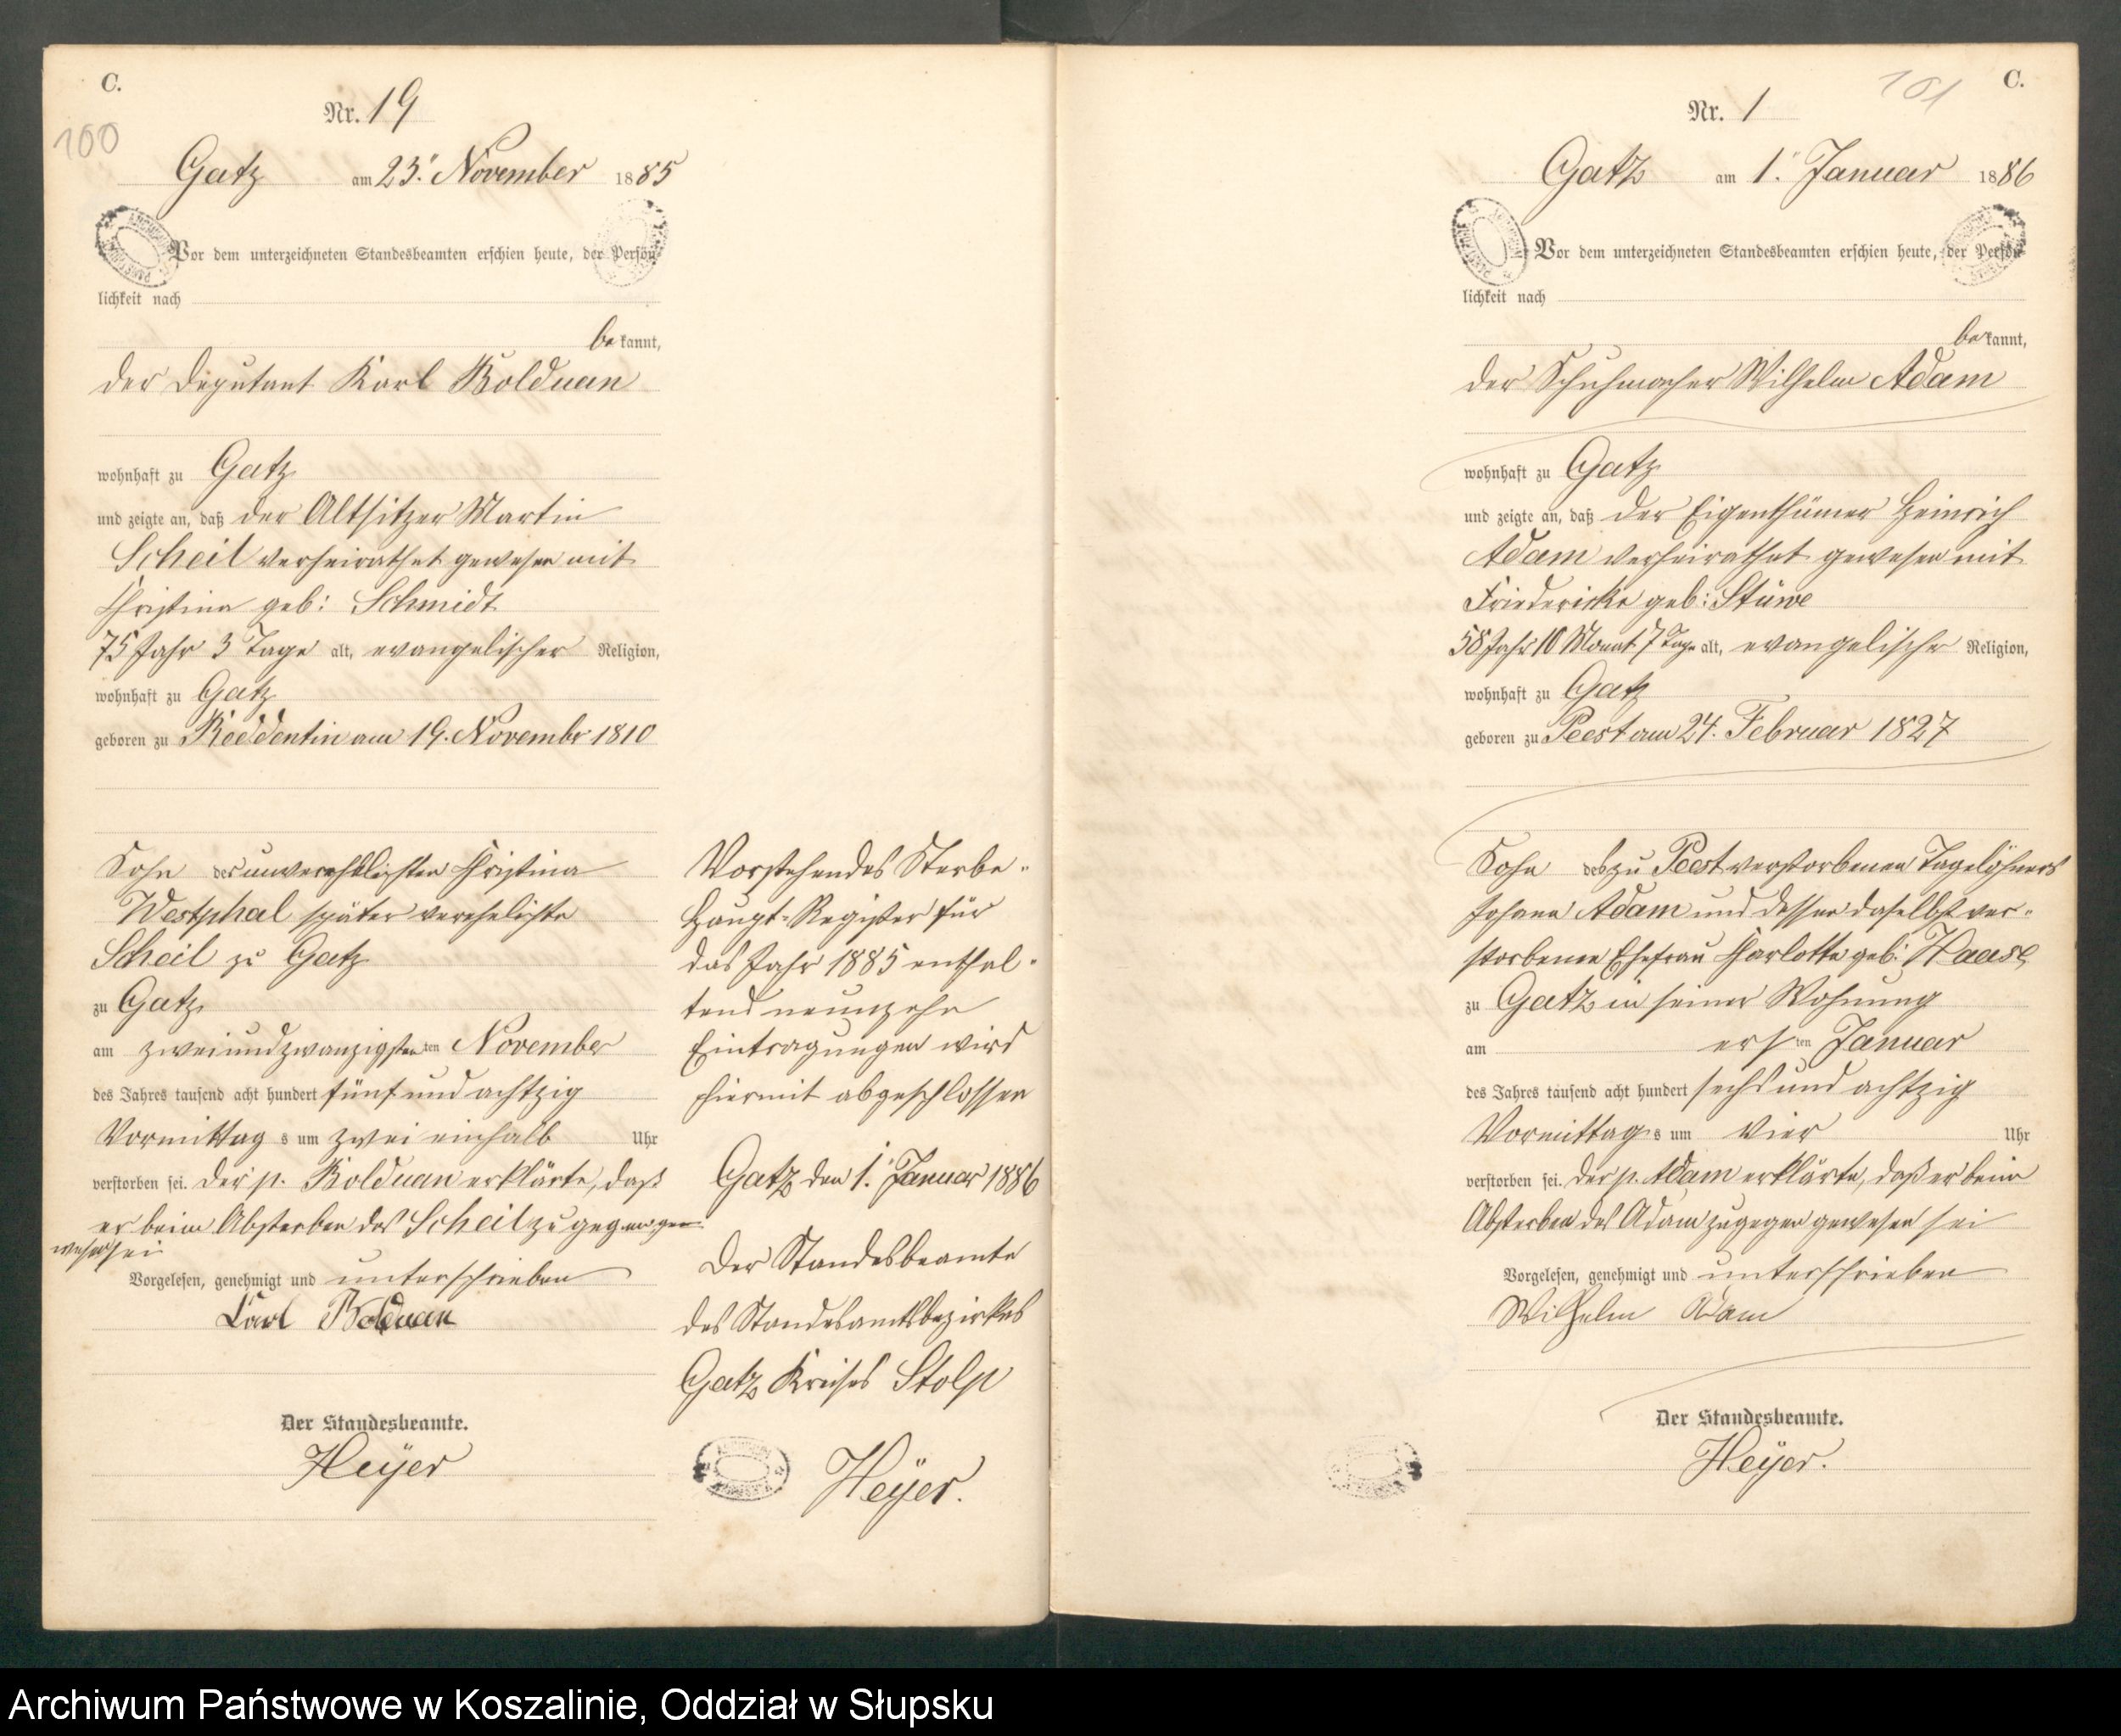 C.
100
Nr. 19
Gatz am 23. November 1885
Vor dem unterzeichneten Standesbeamten erschien heute, der Persön-
lichkeit nach
be kannt,
der Deputant Karl Bolduan
wohnhaft zu Gatz
und zeigte an, daß der Altsitzer Martin
Scheil verheirathet gewesen mit
Christina geb: Schmidt
75 Jahr 3 Tage alt, evangelischer Religion,
wohnhaft zu Gatz
geboren zu Reddentin am 19. Novembr 1810
Sohn der unverehelichten Christina
Westphal später verehelichte
Scheil zu Gatz
zu Gatz
am zweiundzwanzigsten ten November
des Jahres tausend acht hundert fünf und achtzig
Vormittag s um zwei einhalb Uhr
verstorben sei. Der p. Bolduan erklärte, daß
er beim Absterben des Scheil zugegen ge-
wesen sei
Vorgelesen, genehmigt und unterschrieben
Karl Bolduan
Der Standesbeamte.
Heyer
Vorstehendes Sterbe-
Haupt-Register für
das Jahr 1885 enthal-
tend neunzehn
Eintragungen wird
hiermit abgeschlossen
Gatz den 1. Januar 1886
Der Standesbeamte
des Standesamtsbezirkes
Gatz Kreises Stolp
Heyer.
101
C.
Nr. 1
Gatz am 1. Januar 1886
Vor dem unterzeichneten Standesbeamten erschien heute, der Persön-
lichkeit nach
be kannt,
der Schuhmacher Wilhelm Adam
wohnhaft zu Gatz
und zeigte an, daß der Eigenthümer Heinrich
Adam verheirathet gewesen mit
Friedericke geb: Stüwe
58 Jahr 10 Monat 7 Tage alt, evangelischer Religion,
wohnhaft zu Gatz
geboren zu Peest am 24. Februar 1827
Sohn des zu Peest verstorbenen Tagelöhners
Johann Adam und dessen daselbst ver-
storbenen Ehefrau Charlotte geb: Haase
zu Gatz in seiner Wohnung
am ers ten Januar
des Jahres tausend acht hundert sechs und achtzig
Vormittag s um vier Uhr
verstorben sei. Der p. Adam erklärte, daß er beim
Absterben des Adam zugegen gewesen sei
Vorgelesen, genehmigt und unterschrieben
Wilhelm Adam
Der Standesbeamte.
Heyer.
Archiwum Państwowe w Koszalinie, Oddział w Słupsku